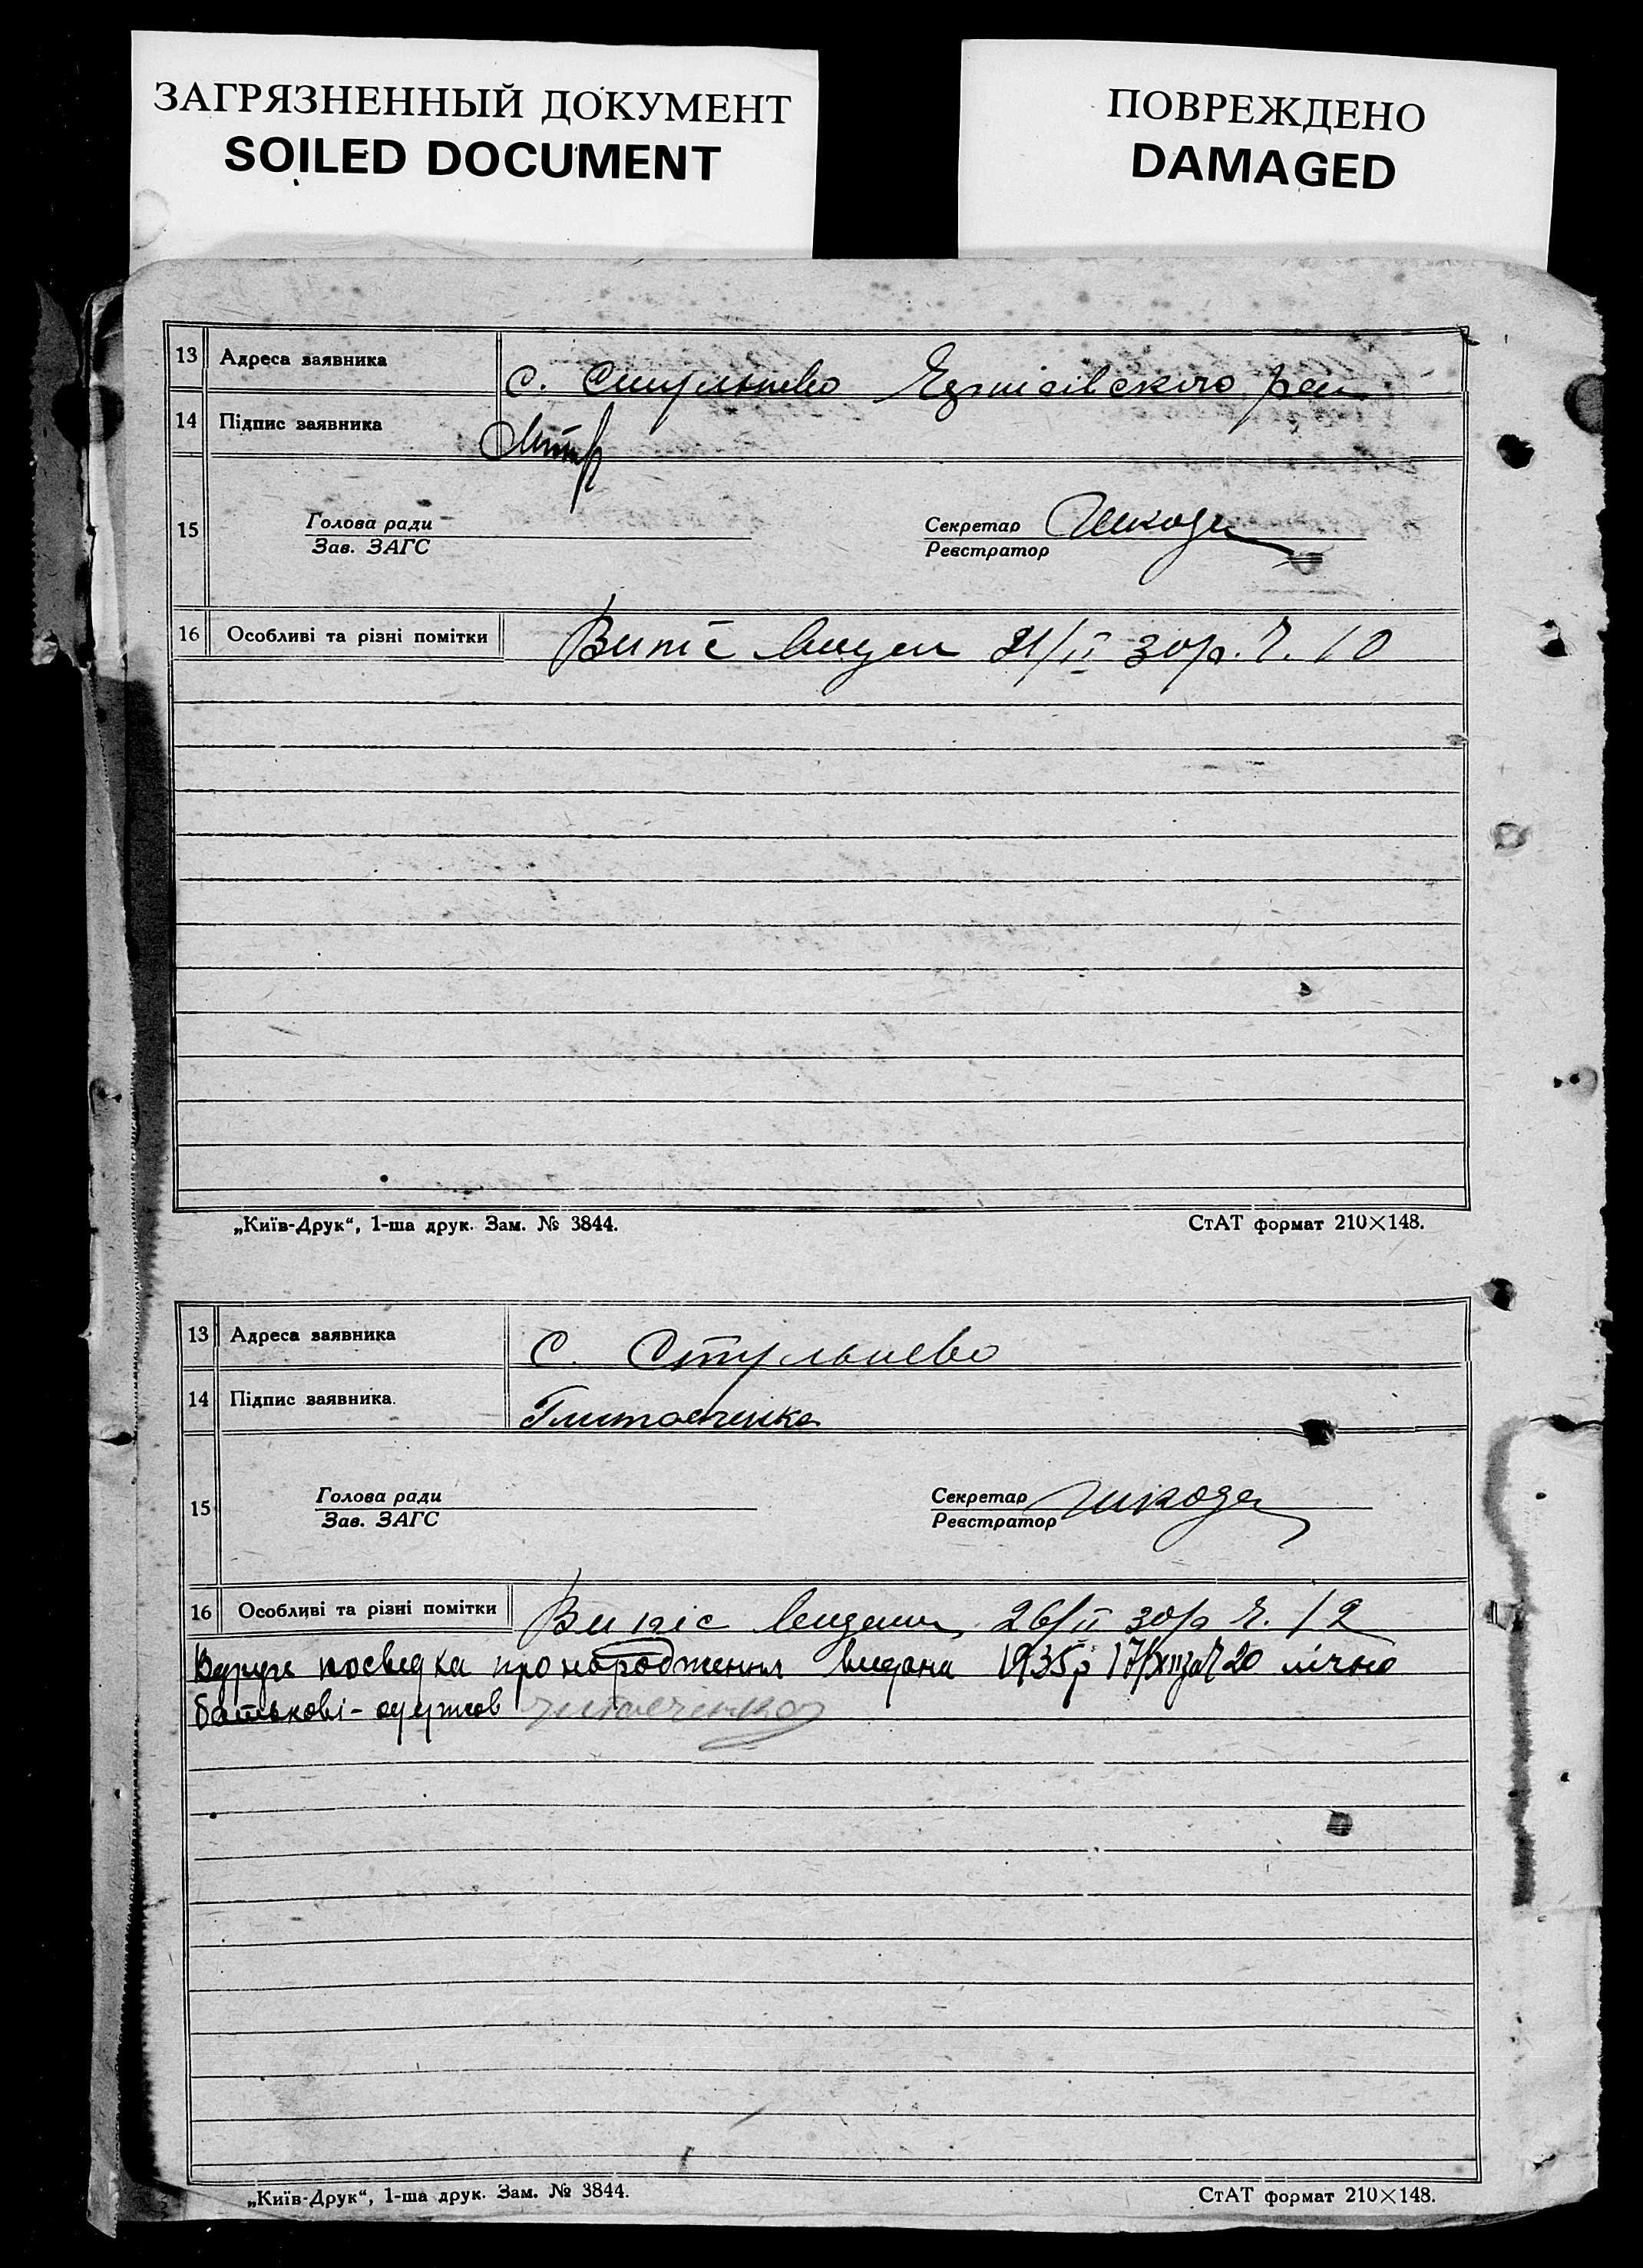 ЗАГРЯЗНЕННЫЙ ДОКУМЕНТ
SOILED DOCUMENT
ПОВРЕЖДЕНО
DAMAGED
13 Адреса заявника с. Стульнево
14 Підпис заявника
15 Голова ради
Зав. ЗАГС
Секретар Шкода
Реєстратор
16 Особливі та різні помітки Витяг видан 21/II 30р. Ч. 10
„Київ-Друк“, 1-ша друк. Зам. № 3844.
СтАТ формат 210×148.
13 Адреса заявника с. Стульнево
14 Підпис заявника
15 Голова ради
Зав. ЗАГС
Секретар Шкода
Реєстратор
16 Особливі та різні помітки Випис видан 26/II 30р Ч. 12
Вдруге посвідка про народження видана 1935р 17/XII за Ч 20 лічно
батькові - одержав
„Київ-Друк“, 1-ша друк. Зам. № 3844.
СтАТ формат 210×148.